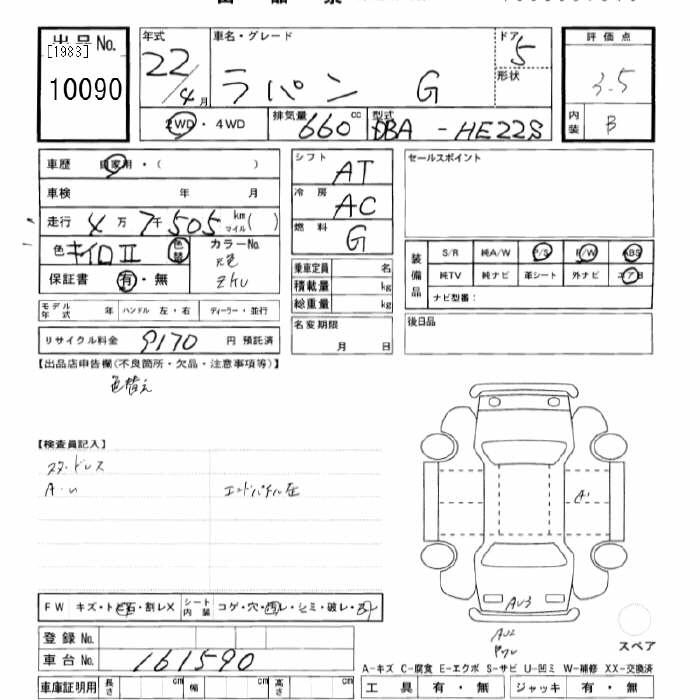 出品No.
[1983]
10090
年式
22/4月
車名・グレード
ラパン G
ドア
5
形状
評価点
3.5
内装
B
2WD・4WD
排気量 660 cc
型式 DBA-HE22S
車歴 自家用・( )
車検 年 月
走行 4万7千505 km マイル( )
色 キイロII 色替 カラーNo.
元色 ZKU
保証書 有・無
モデル年式 年 ハンドル 左・右 ディーラー・並行
リサイクル料金 9170 円 預託済
シフト AT
冷房 AC
燃料 G
乗車定員 名
積載量 kg
総重量 kg
名変期限
月 日
セールスポイント
装備品
S/R 純A/W P/S P/W ABS
純TV 純ナビ 革シート 外ナビ エアB
ナビ型番:
後日品
【出品店申告欄(不良箇所・欠品・注意事項等)】
色替え
【検査員記入】
スタッドレス
A・U
エンドパネル左
A1
AU3
AU2
FW キズ・トビ石・割レX シート内装 コゲ・穴・汚レ・シミ・破レ・
登録No.
車台No. 161590
車庫証明用 長さ cm 幅 cm 高さ cm
スペア
A-キズ C-腐食 E-エクボ S-サビ U-凹ミ W-補修 XX-交換済
工具 有・無 ジャッキ 有・無